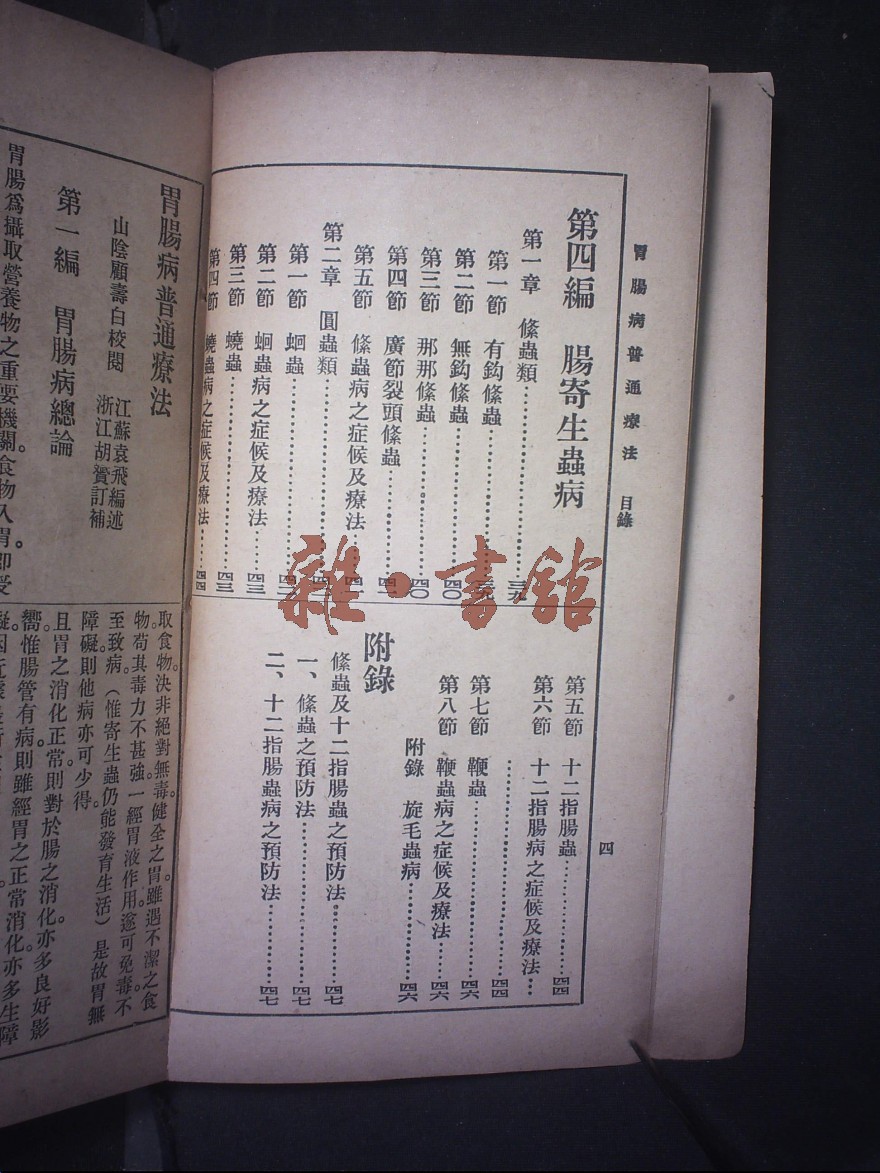 胃腸病普通療法 目錄
四
第四編 腸寄生蟲病
第一章 絛蟲類……三九
第一節 有鈎絛蟲……三九
第二節 無鈎絛蟲……四〇
第三節 那那絛蟲……四〇
第四節 廣節裂頭絛蟲……四
第五節 絛蟲病之症候及療法……四
第二章 圓蟲類……四
第一節 蛔蟲……四
第二節 蛔蟲病之症候及療法……四三
第三節 蟯蟲……四三
第四節 蟯蟲病之症候及療法……四四
第五節 十二指腸蟲……四四
第六節 十二指腸病之症候及療法……
……四四
第七節 鞭蟲……四六
第八節 鞭蟲病之症候及療法……四六
附錄 旋毛蟲病……四六
附錄
絛蟲及十二指腸蟲之預防法……四七
一、絛蟲之預防法……四七
二、十二指腸蟲病之預防法……四七
雜·書館
胃腸病普通療法
山陰顧壽白校閱
江蘇袁飛編述
浙江胡贇訂補
第一編 胃腸病總論
胃腸爲攝取營養物之重要機關。食物入胃。卽受
取食物。決非絕對無毒。健全之胃。雖遇不潔之食
物。苟其毒力不甚強。一經胃液作用。遂可免毒。不
至致病。（惟寄生蟲仍能發育生活）是故胃無
障礙。則他病亦可少得。
且胃之消化正常。則對於腸之消化。亦多良好影
嚮。惟腸管有病。則雖經胃之正常消化。亦多生障